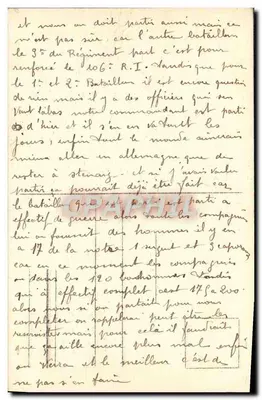 et nous on doit partir aussi mais ca
n'est pas sûr, car l'autre bataillon
le 3e du Régiment part c'est pour
renforcé le 106e R.I. tandis que pour
le 1er et 2e Bataillon il est encore question
de rien mais il y a des officiers qui s'en
vont labas notre commandant est parti
d'hier et il s'en en va tout les
jours, enfin tout le monde aimerais
mieux aller en allemagne que de
rester à et si j'avais voulu
partir ça pourrait déjà être fait car
le bataillon qui est parti a
effectif de guerre alors toutes les compagnies
lui on fournit des hommes il y en
a 17 de la notre 1 sergent et 3 caporaux
car en ce moment les compagnies
on dans les 120 bonhommes tandis
qui a effectif complet c'est 175 a 200.
alors nous si on partait pour nous
compléter on rappelera peut être les
mais pour celà il faudrait
que ça aille encore plus mal, enfin
on verra et le meilleur c'est de
ne pas s'en faire